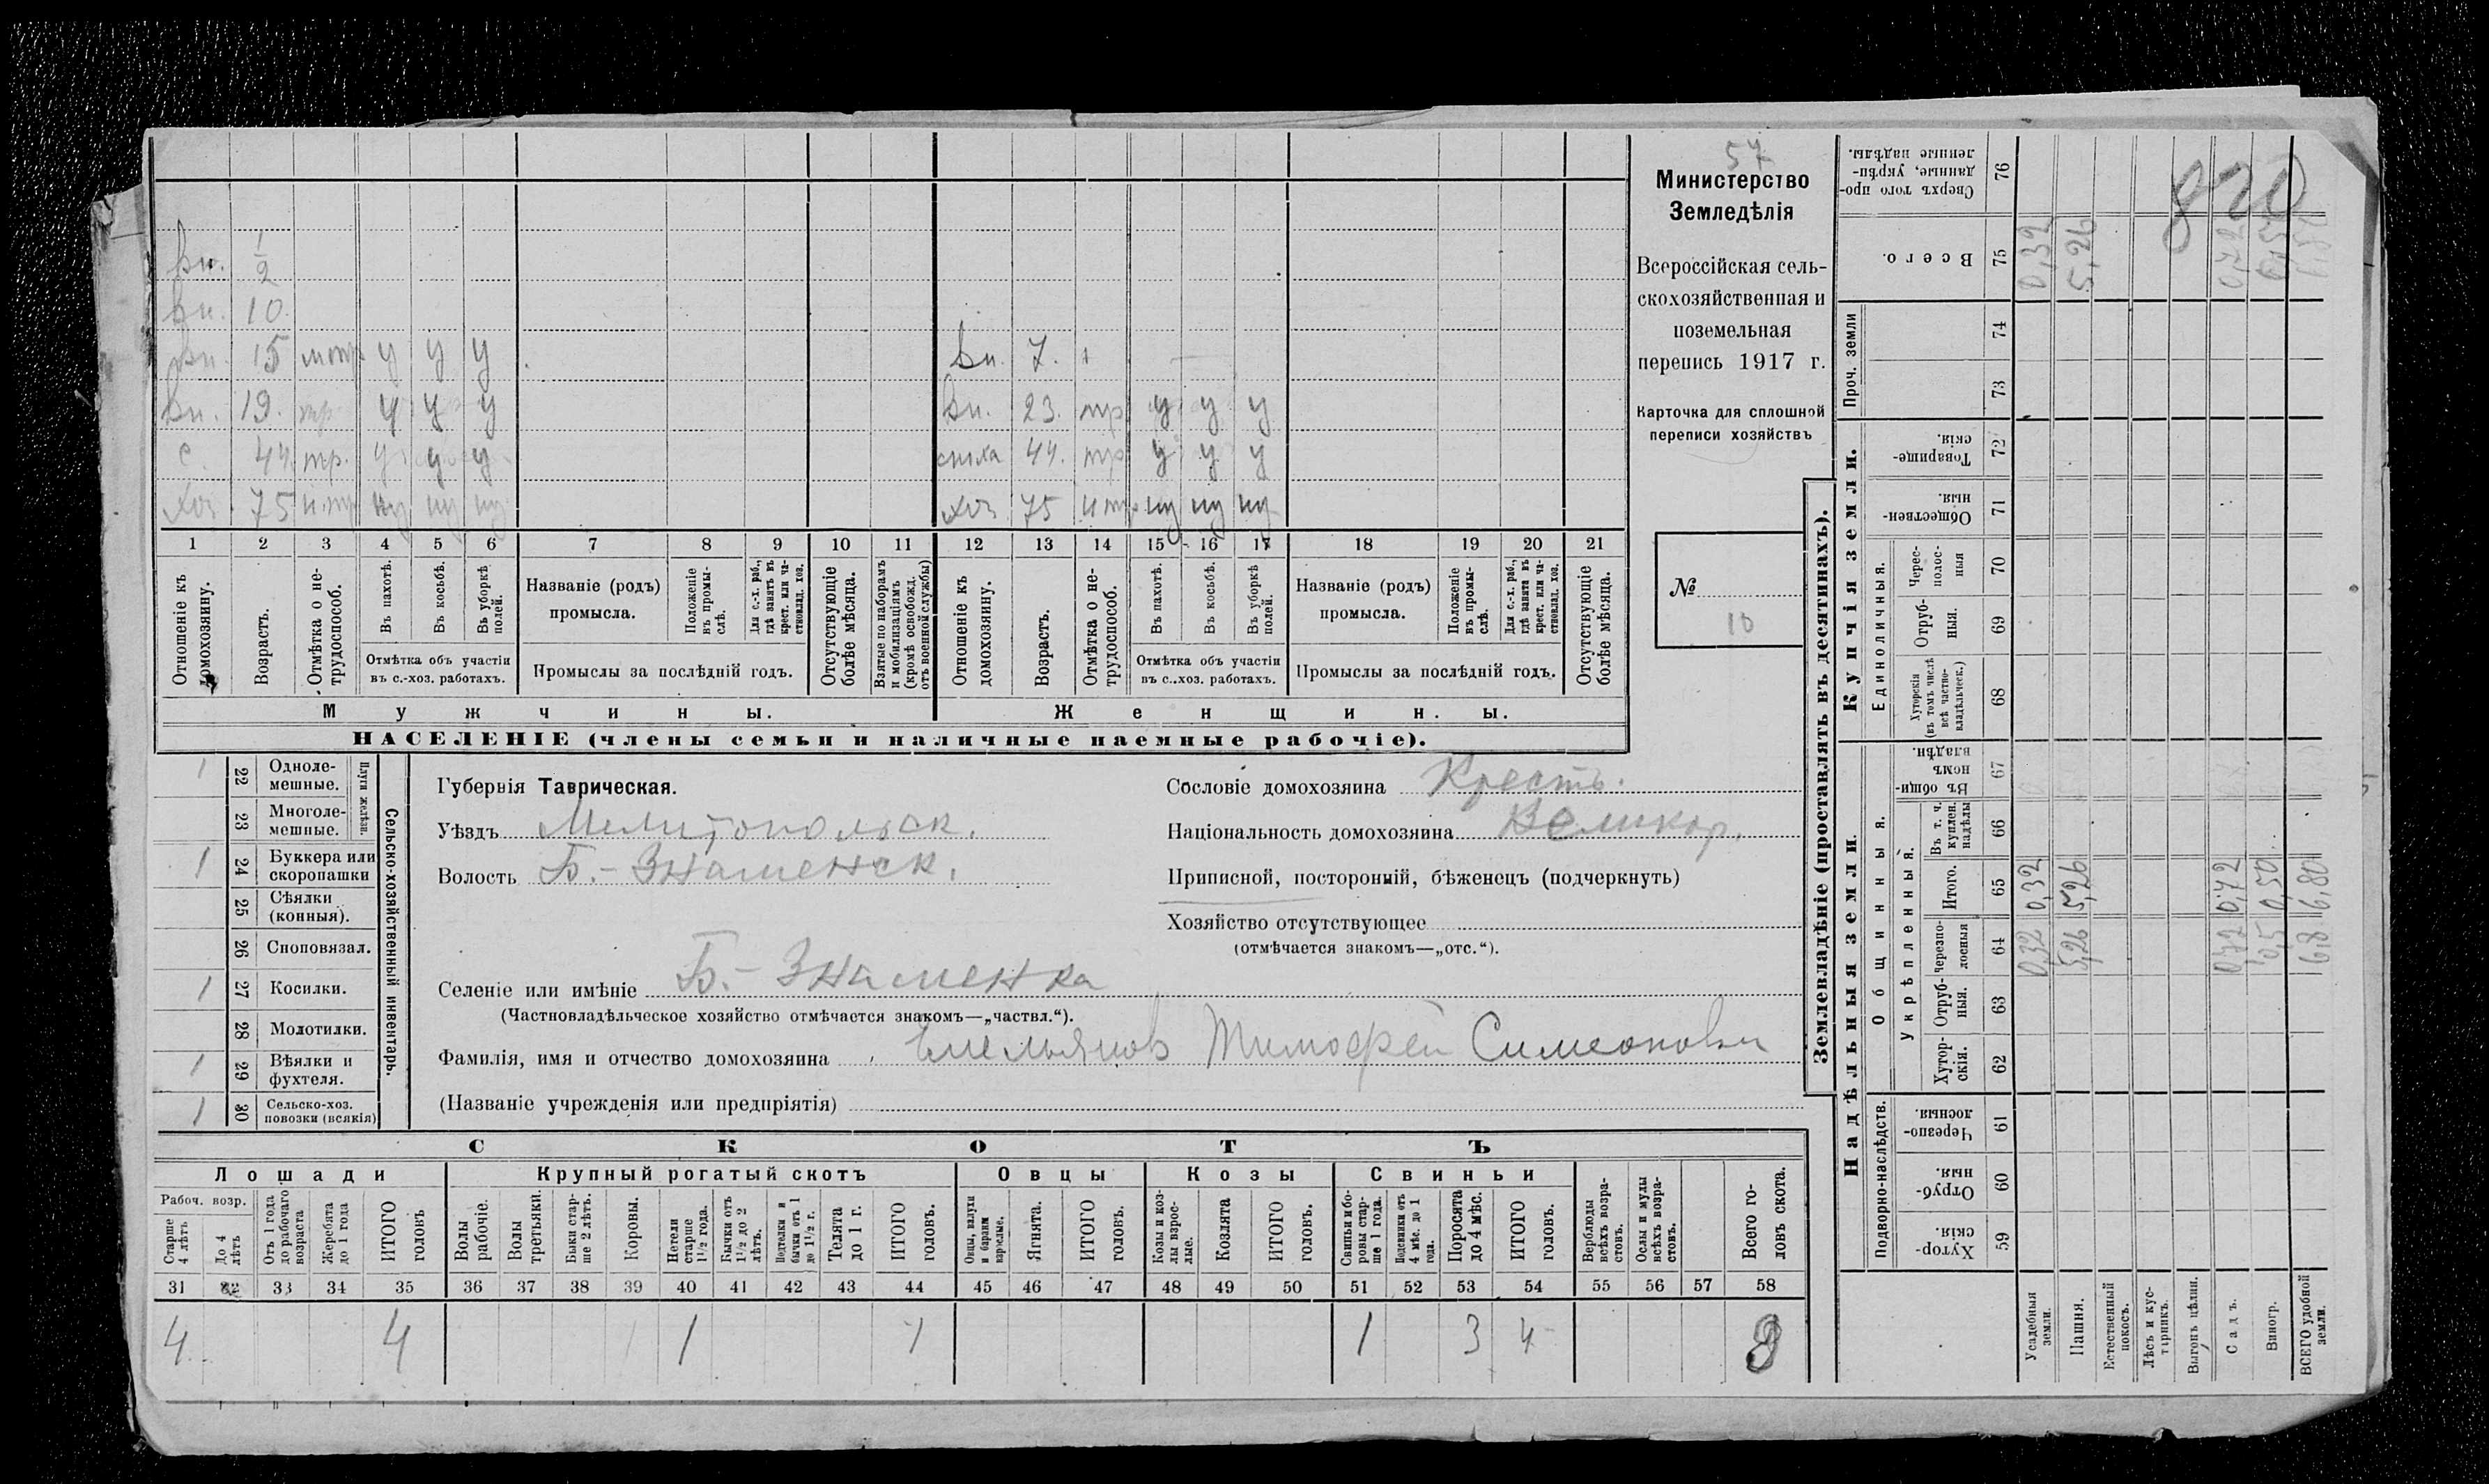 57
Министерство
Земледѣлія
Всероссійская сель-
скохозяйственная и
поземельная
перепись 1917 г.
Карточка для сплошной
переписи хозяйствъ
№
10
Вн. 1/2
Вн. 10
Вн. 15 у у у Вн. 7.
Вн. 19. тр. у у у Вн. 23. тр. у у у
с. 44. тр. у у у 44. тр. у у у
Хоз. 75 н.тр. ну ну ну Хоз 75 н тр. ну ну ну
1 2 3 4 5 6 7 8 9 10 11 12 13 14 15 16 17 18 19 20 21
Отношеніе къ домохозяину.
Возрастъ.
Отмѣтка о не-трудоспособ.
Въ пахотѣ.
Въ косьбѣ.
Въ уборкѣ полей.
Отмѣтка объ участіи
въ с.-хоз. работахъ.
Названіе (родъ)
промысла.
Положеніе въ промы-слѣ.
Для с.-х. раб., гдѣ занятъ въ крест. или ча-стновлад. хоз.
Промыслы за послѣдній годъ.
Отсутствующіе болѣе мѣсяца.
Взятые по наборамъ и мобилизаціямъ (кромѣ освобожд. отъ военной службы)
Отношеніе къ домохозяину.
Возрастъ.
Отмѣтка о не-трудоспособ.
Въ пахотѣ.
Въ косьбѣ.
Въ уборкѣ полей.
Отмѣтка объ участіи
въ с.-хоз. работахъ.
Названіе (родъ)
промысла.
Положеніе въ промы-слѣ.
Для с.-х. раб., гдѣ занята въ крест. или ча-стновлад. хоз.
Промыслы за послѣдній годъ.
Отсутствующіе болѣе мѣсяца.
Мужчины.
Женщины.
НАСЕЛЕНІЕ (члены семьи и наличные наемные рабочіе).
1 22 Одноле-мешные.
23 Многоле-мешные.
Плуги желѣзн.
1 24 Буккера или скоропашки
25 Сѣялки (конныя).
26 Сноповязал.
1 27 Косилки.
28 Молотилки.
1 29 Вѣялки и фухтеля.
1 30 Сельско-хоз. повозки (всякія)
Сельско-хозяйственный инвентарь.
Губернія Таврическая.
Уѣздъ Мелитопольск.
Волость Б.-Знаменск.
Сословіе домохозяина Крестъ.
Національность домохозяина Великор.
Приписной, посторонній, бѣженецъ (подчеркнуть)
Хозяйство отсутствующее
(отмѣчается знакомъ—„отс.“).
Селеніе или имѣніе Б.-Знаменка
(Частновладѣльческое хозяйство отмѣчается знакомъ—„частвл.“).
Фамилія, имя и отчество домохозяина Емельянов Тимофей Симеонович
(Названіе учрежденія или предпріятія)
СКОТЪ
Лошади
Крупный рогатый скотъ
Овцы
Козы
Свиньи
Рабоч. возр.
Старше 4 лѣтъ
До 4 лѣтъ
Отъ 1 года до рабочаго возраста
Жеребята до 1 года
ИТОГО головъ
Волы рабочіе.
Волы третьяки.
Быки стар-ше 2 лѣтъ.
Коровы.
Нетели старше 1 1/2 года.
Бычки отъ 1 1/2 до 2 лѣтъ.
Подтелки и бычки отъ 1 до 1 1/2 г.
Телята до 1 г.
ИТОГО головъ.
Овцы, валухи и бараны взрослые.
Ягнята.
ИТОГО головъ.
Козы и коз-лы взрос-лые.
Козлята
ИТОГО головъ.
Свиньи и бо-ровы стар-ше 1 года.
Подсвинки отъ 4 мѣс. до 1 года.
Поросята до 4 мѣс.
ИТОГО головъ.
Верблюды всѣхъ возра-стовъ.
Ослы и мулы всѣхъ возра-стовъ.
Всего го-ловъ скота.
31 32 33 34 35 36 37 38 39 40 41 42 43 44 45 46 47 48 49 50 51 52 53 54 55 56 57 58
4 4 1 1 1 3 4
Землевладѣніе (проставлять въ десятинахъ).
Надѣльныя земли.
Купчія земли.
Проч. земли
Подворно-наслѣдств.
Общинныя.
Укрѣпленный.
Единоличныя.
Хутор-скія. 59
Отруб-ныя. 60
Черезпо-лосныя. 61
Хутор-скія. 62
Отруб-ныя. 63
Черезпо-лосныя 64
Итого. 65
Въ т. ч. куплен. надѣлы 66
Въ общи-номъ владѣн. 67
Хуторскія (въ томъ числѣ всѣ частно-владѣльческ.) 68
Отруб-ныя. 69
Черес-полос-ныя 70
Обществен-ныя. 71
Товарище-скія. 72
73
74
Всего. 75
Сверхъ того про-данные, укрѣп-ленные надѣлы. 76
Усадебныя земли. 0,32 0,32 0,32
Пашня. 5,26 5,26 5,26
Естественный покосъ.
Лѣсъ и кус-тарникъ.
Выгонъ цѣлин.
Садъ. 0,72 0,72 0,72
Виногр. 0,5 0,50 0,50
ВСЕГО удобной земли. 6,8 6,80
820